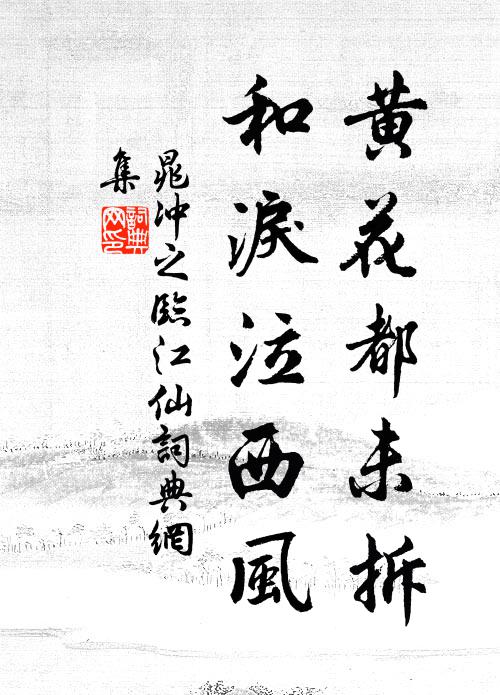 黄花都未拆
和淚泣西風
晁沖之臨江仙詞典網
集
詞典
网印